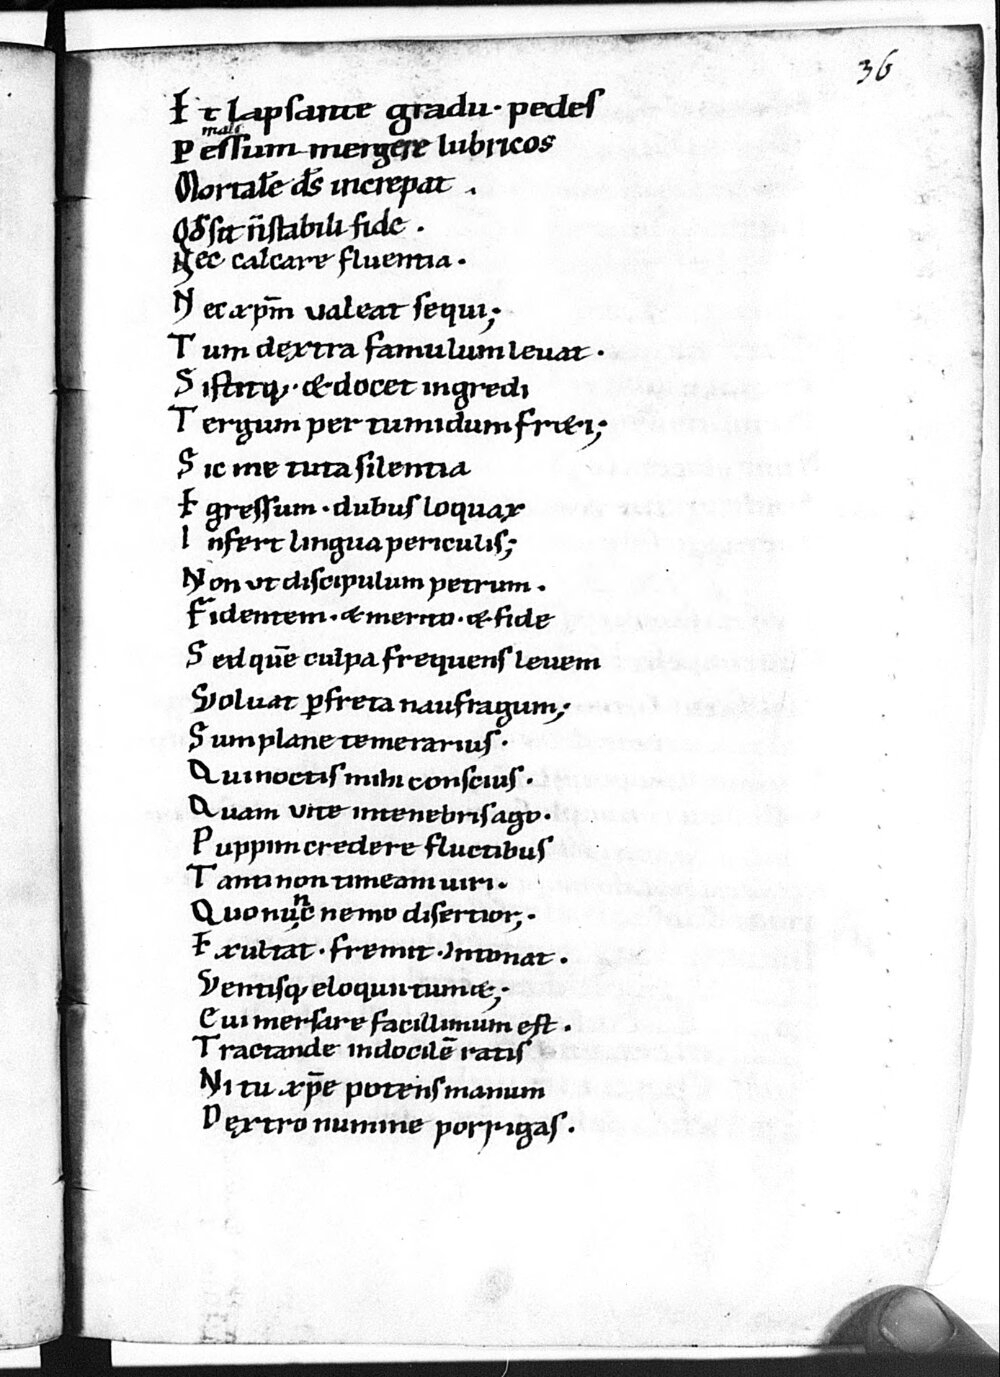 36
Et lapsante gradu· pedes
male
Pessum mergere lubricos
Mortalē d̄s increpat .
Qđ sit ñ stabili fide .
Nec calcare fluentia·
Nec xp̄m valeat sequi;
Tum dextra famulum levat·
Sistitq;· & docet ingredi
Tergum per tumidum fr&i;
Sic me tuta silentia
Egressum· dubus loquax
Infert lingua periculis;
Non ut discipulum petrum·
Fidentem· & merito· & fide
Sed quē culpa frequens levem
Volvat ꝑ freta naufragum;
Sum plane temerarius·
Qui noctis mihi conscius·
Quam vite in tenebris ago·
Puppim credere fluctibus
Tanti non timeam viri·
Quo nunc nemo disertior;
Exultat· fremit· Intonat·
Ventisq; eloquii tum&;
Cui mersare facillimum est·
Tractande indocilē ratis
Ni tu xp̄e potens manum
Dextro numine porrigas·